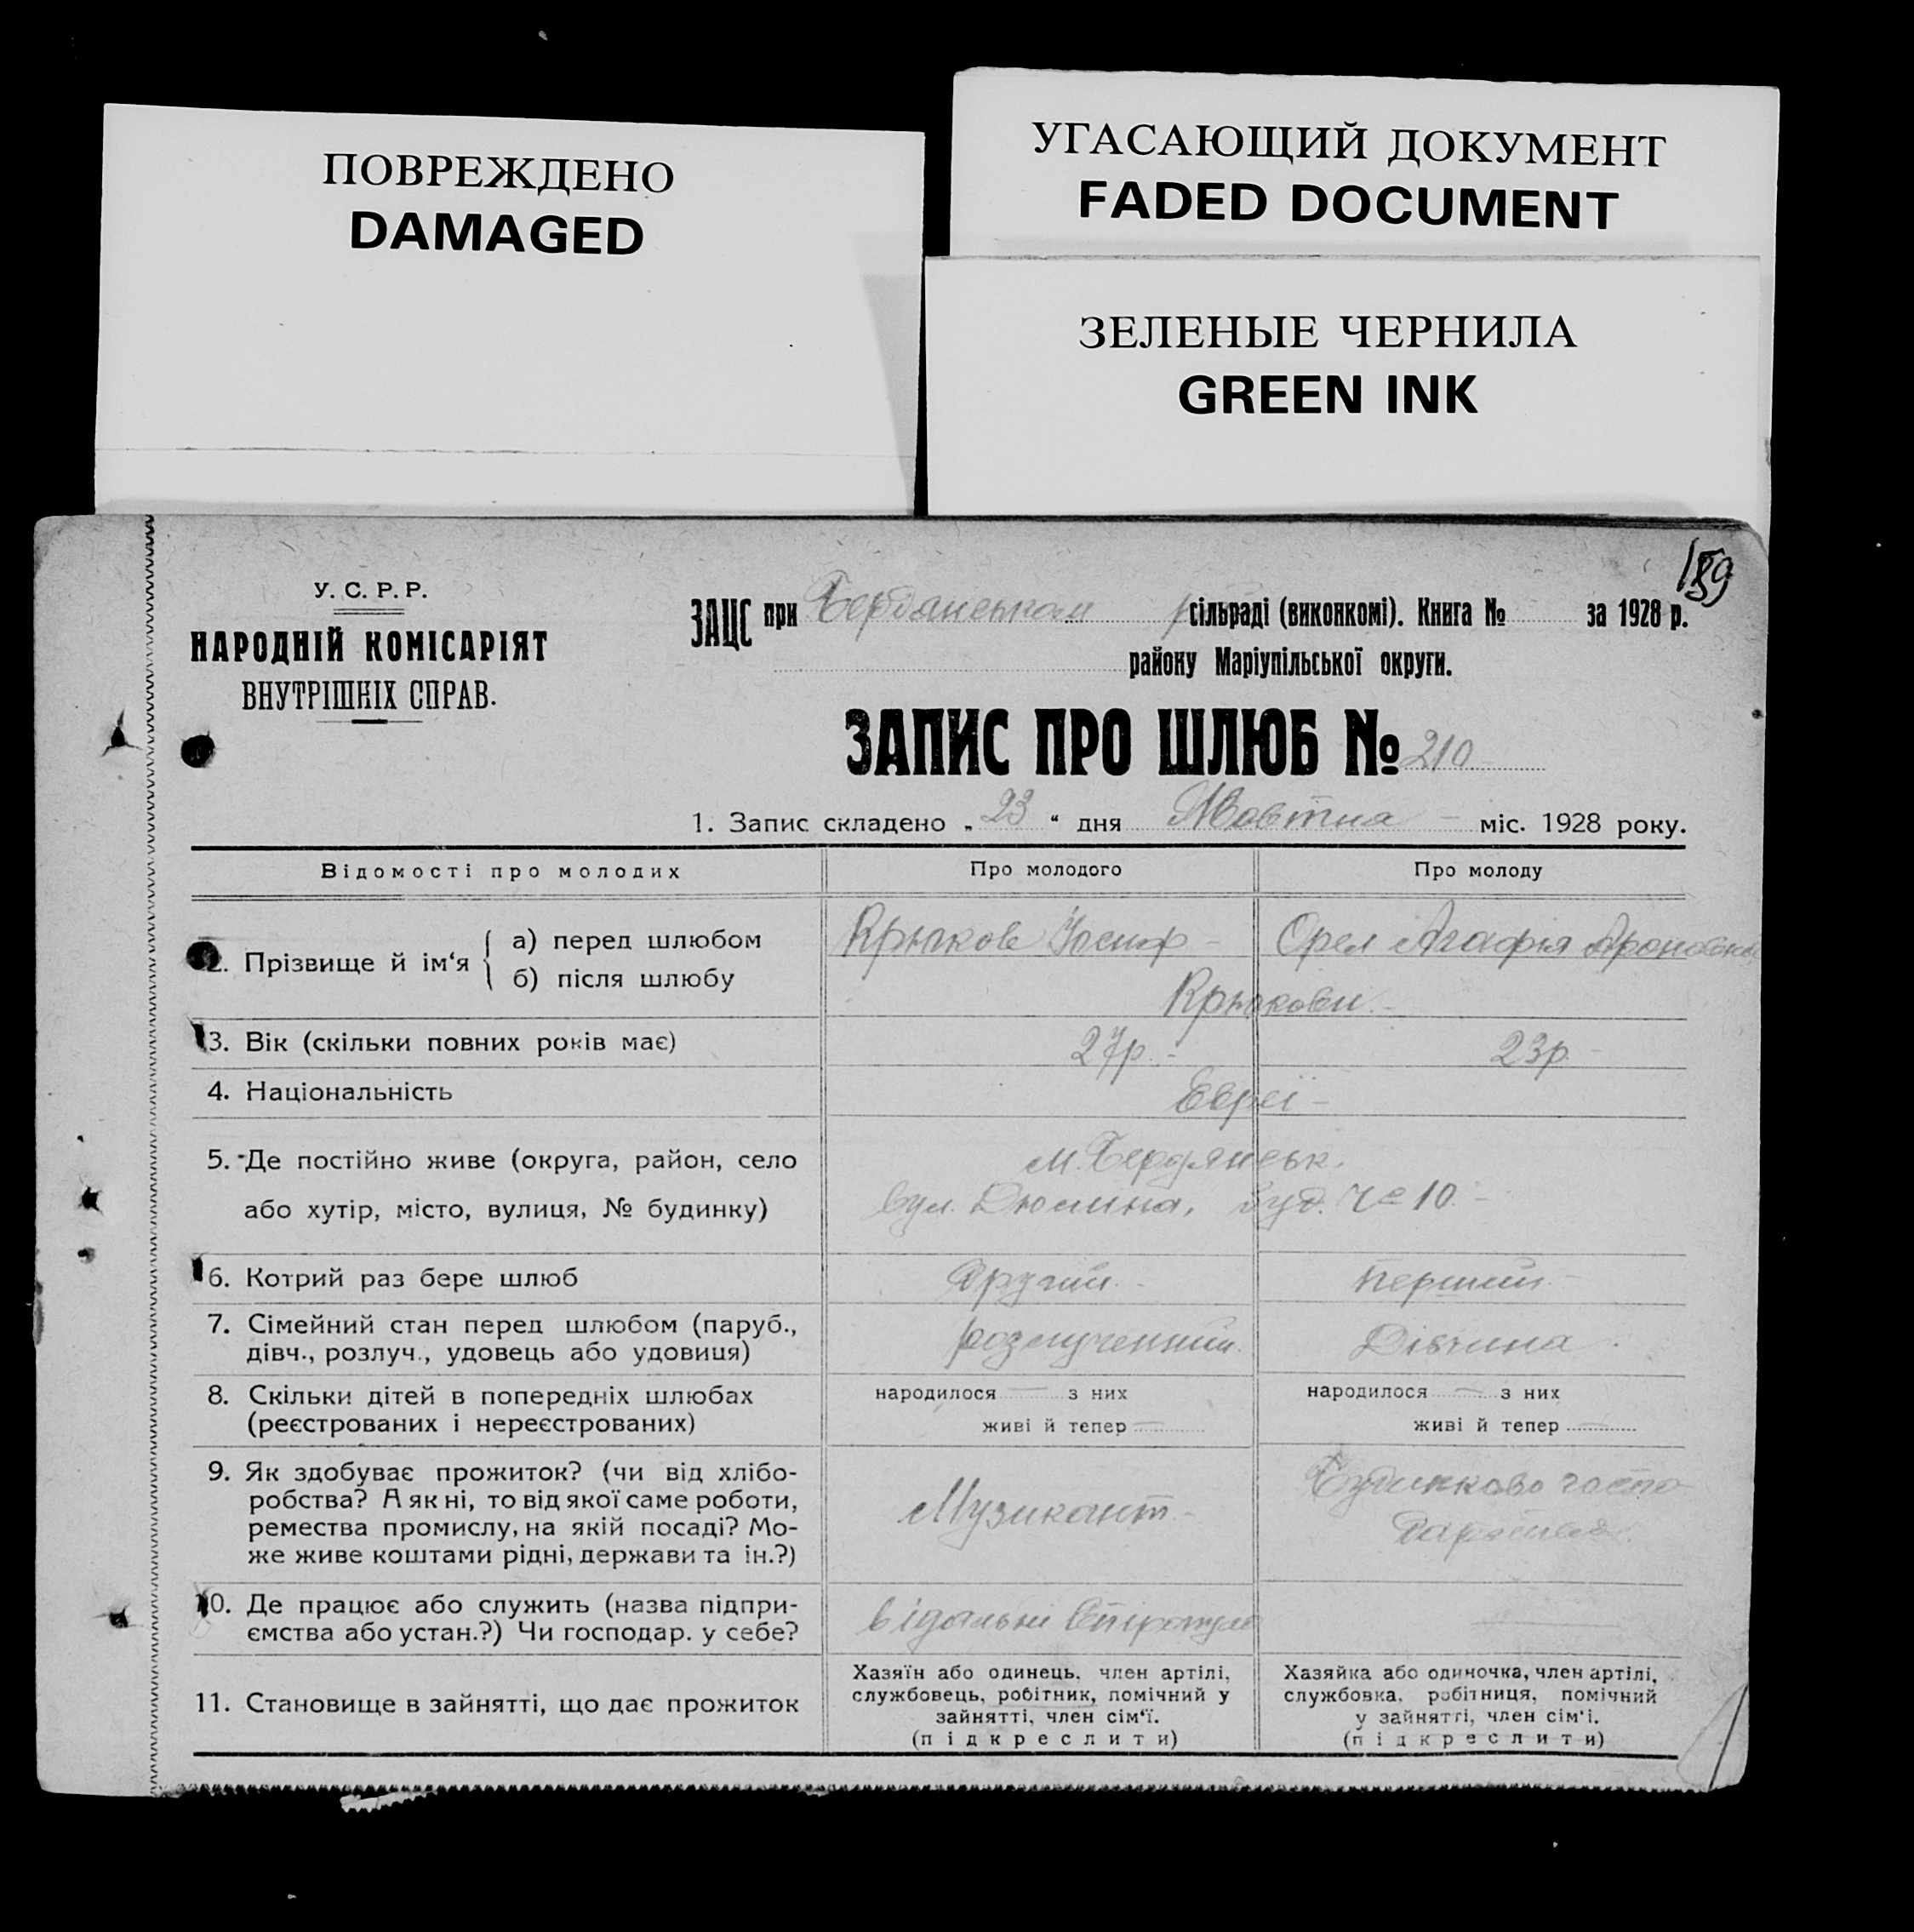 ПОВРЕЖДЕНО
DAMAGED
УГАСАЮЩИЙ ДОКУМЕНТ
FADED DOCUMENT
ЗЕЛЕНЫЕ ЧЕРНИЛА
GREEN INK
159
У. С. Р. Р.
НАРОДНІЙ КОМІСАРІЯТ
ВНУТРІШНІХ СПРАВ.
ЗАЦС при Бердянському сільраді (виконкомі). Книга № за 1928 р.
району Маріупільської округи.
ЗАПИС ПРО ШЛЮБ № 210
1. Запис складено „23“ дня Жовтня міс. 1928 року.
Відомості про молодих Про молодого Про молоду
2. Прізвище й ім‘я а) перед шлюбом Крюков Йосиф Орел Агафія Ароновна
б) після шлюбу Крюкови
3. Вік (скільки повних років має) 27р. 23р.
4. Національність Евреї
5. Де постійно живе (округа, район, село м. Бердянськ,
або хутір, місто, вулиця, № будинку) вул. Дюміна, буд. № 10
6. Котрий раз бере шлюб Другий Перший
7. Сімейний стан перед шлюбом (паруб., розлучений Дівчина
дівч., розлуч., удовець або удовиця)
8. Скільки дітей в попередніх шлюбах народилося — з них народилося — з них
(реєстрованих і нереєстрованих) живі й тепер — живі й тепер —
9. Як здобуває прожиток? (чи від хлібо-
робства? А як ні, то від якої саме роботи, Музикант
ремества промислу, на якій посаді? Мо-
же живе коштами рідні, держави та ін.?)
10. Де працює або служить (назва підпри- в ідальні —
ємства або устан.?) Чи господар. у себе?
11. Становище в зайнятті, що дає прожиток
Хазяїн або одинець, член артілі,
службовець, робітник, помічний у
зайнятті, член сім‘ї.
(підкреслити)
Хазяйка або одиночка, член артілі,
службовка, робітниця, помічний
у зайнятті, член сім‘ї.
(підкреслити)